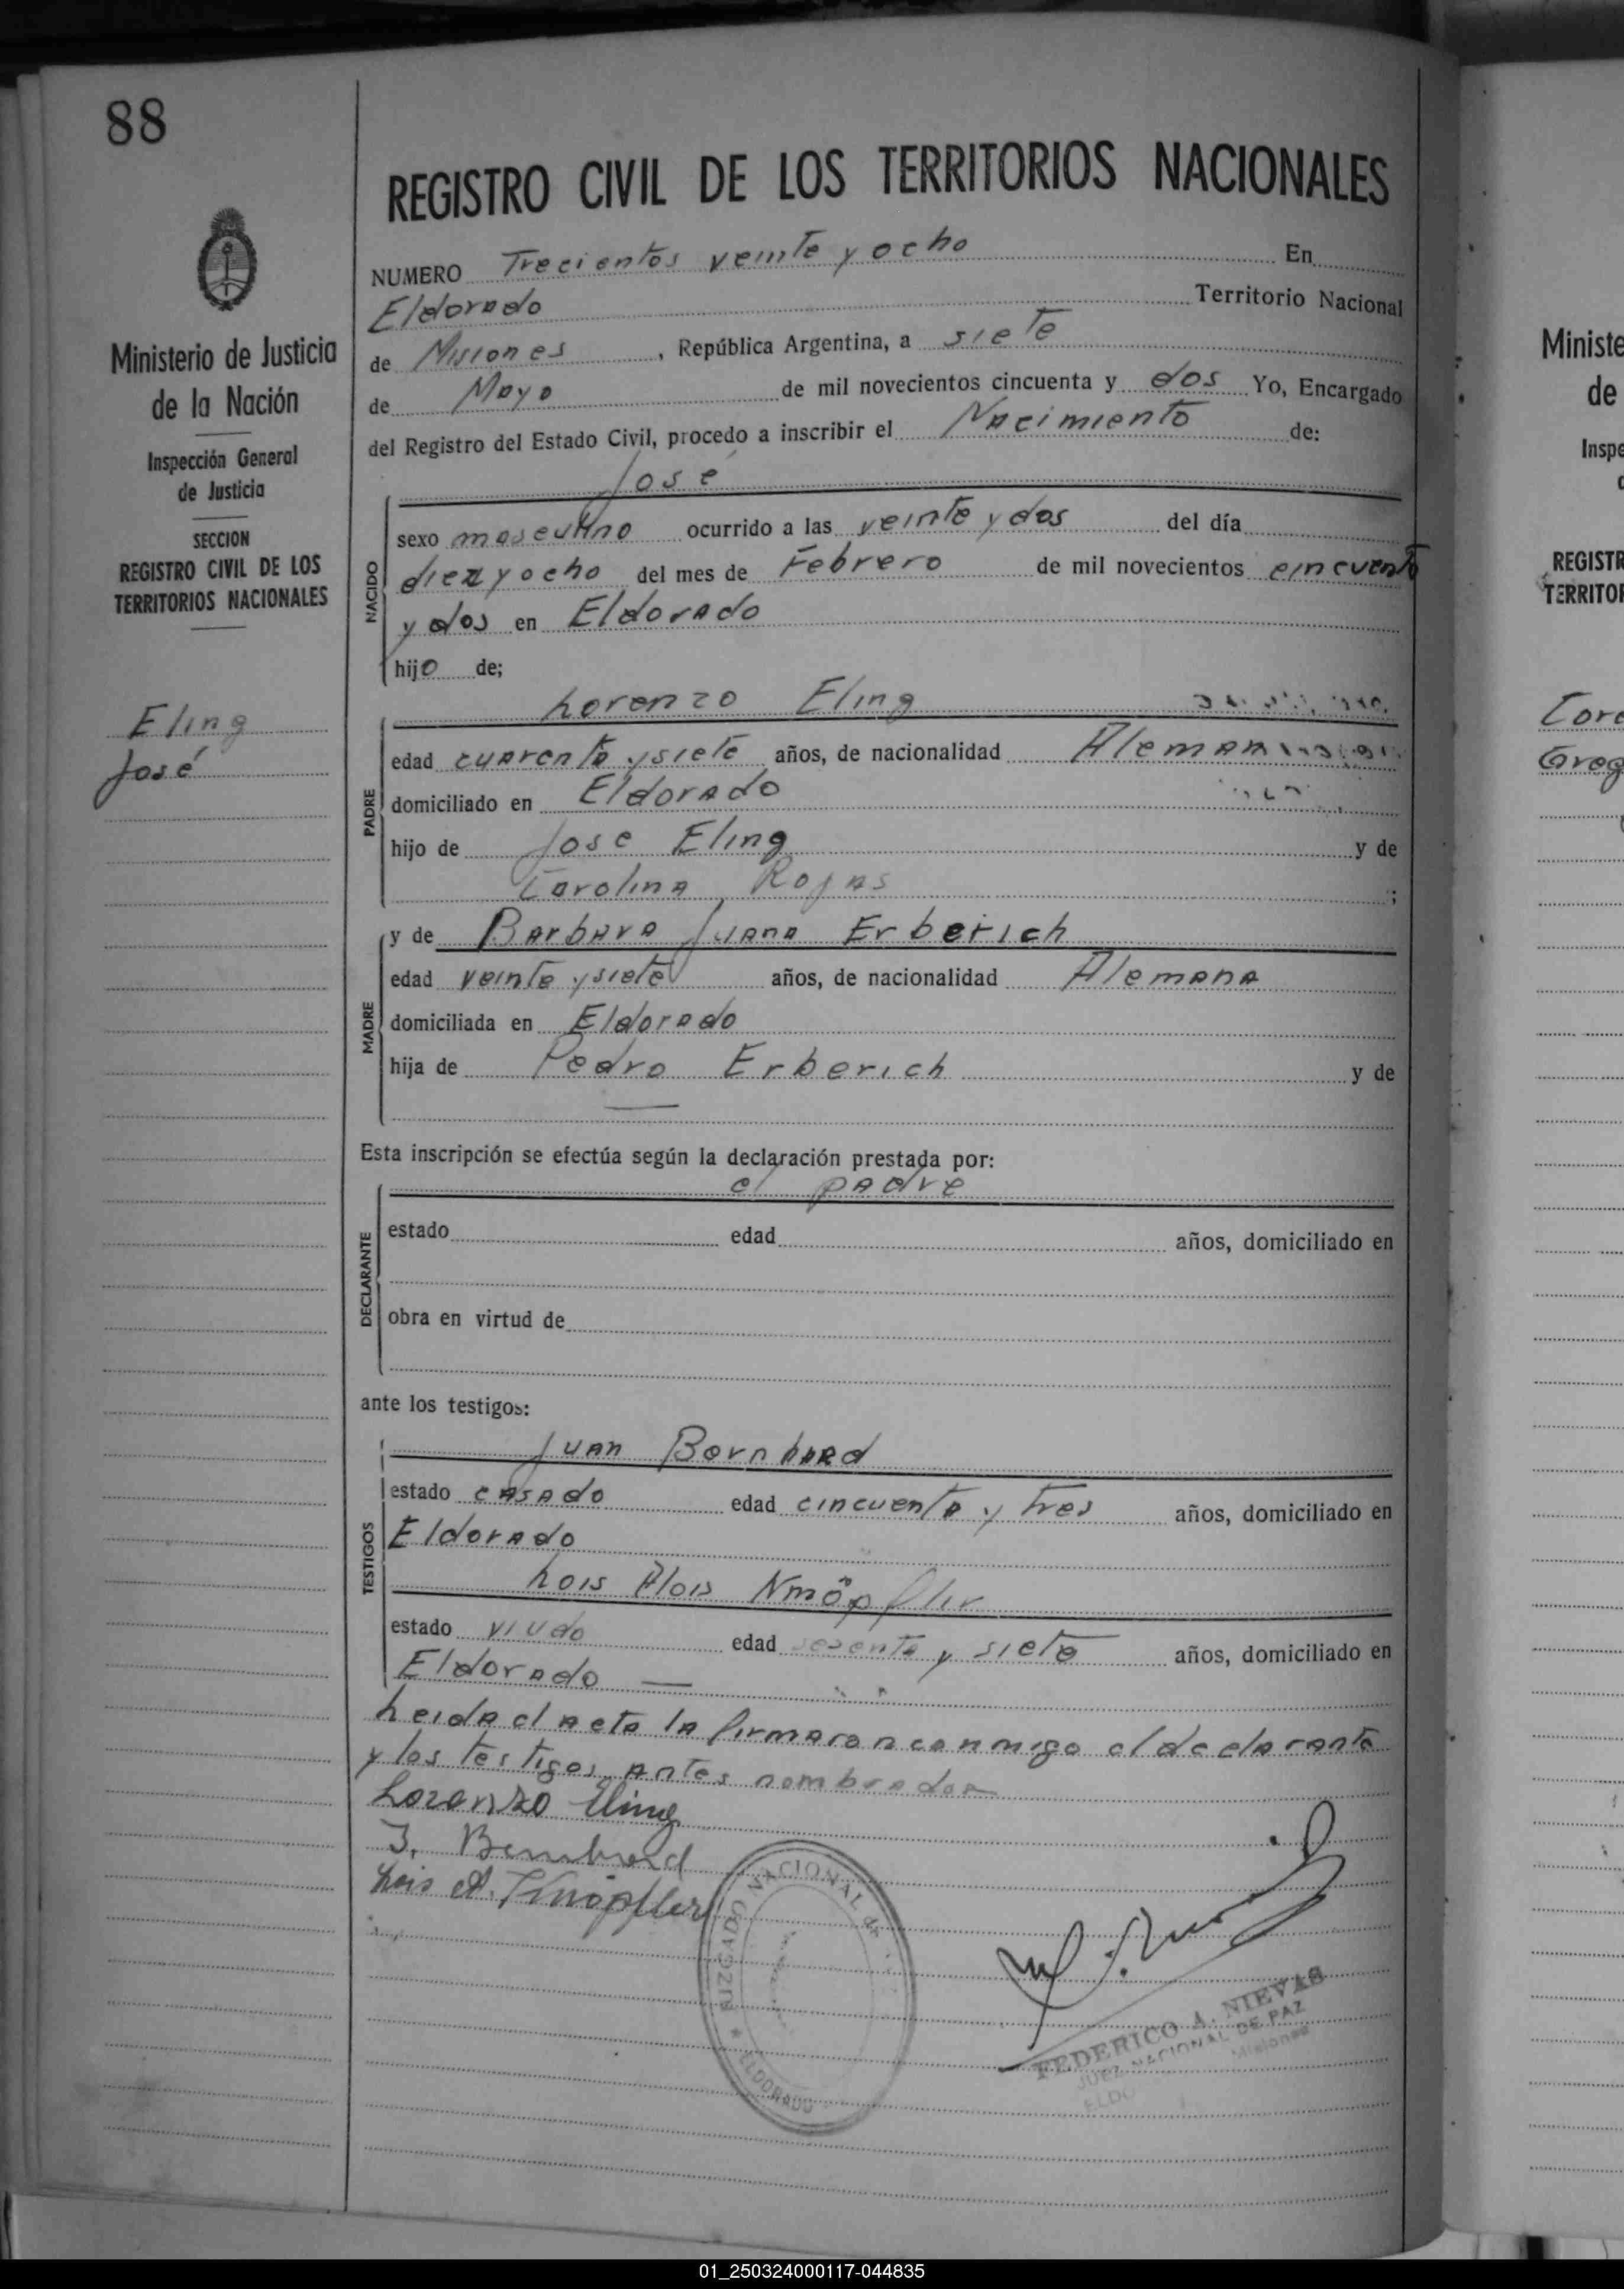 88
REGISTRO CIVIL DE LOS TERRITORIOS NACIONALES
Ministerio de Justicia
de la Nación
Inspección General
de Justicia
SECCION
REGISTRO CIVIL DE LOS
TERRITORIOS NACIONALES
Eling
José
NUMERO Trecientos veinte y ocho En
Eldorado Territorio Nacional
de Misiones, República Argentina, a siete
de Mayo de mil novecientos cincuenta y dos Yo, Encargado
del Registro del Estado Civil, procedo a inscribir el Nacimiento de:
José
NACIDO
sexo masculino ocurrido a las veinte y dos del día
diez y ocho del mes de Febrero de mil novecientos cincuenta
y dos en Eldorado
hijo de;
Lorenzo Eling
PADRE
edad cuarenta y siete años, de nacionalidad Aleman
domiciliado en Eldorado
hijo de Jose Eling y de
Carolina Rojas ;
y de Barbara Juana Erberich
MADRE
edad veinte y siete años, de nacionalidad Alemana
domiciliada en Eldorado
hija de Pedro Erberich y de
—
Esta inscripción se efectúa según la declaración prestada por:
el padre
DECLARANTE
estado edad años, domiciliado en
obra en virtud de
ante los testigos:
Juan Bernhard
TESTIGOS
estado casado edad cincuenta y tres años, domiciliado en
Eldorado
Lois Alois Nmöpfler
estado viudo edad sesenta y siete años, domiciliado en
Eldorado —
Leida el acta la firmaran conmigo el declarante
y los testigos antes nombrados
Lorenzo Eling
J. Bernhard
Lois A. Knöpfler
JUZGADO NACIONAL de
* ELDORADO
FEDERICO A. NIEVAS
JUEZ NACIONAL DE PAZ
ELDO Misiones
Ministe
de
Inspe
REGISTR
TERRITOR
01_250324000117-044835